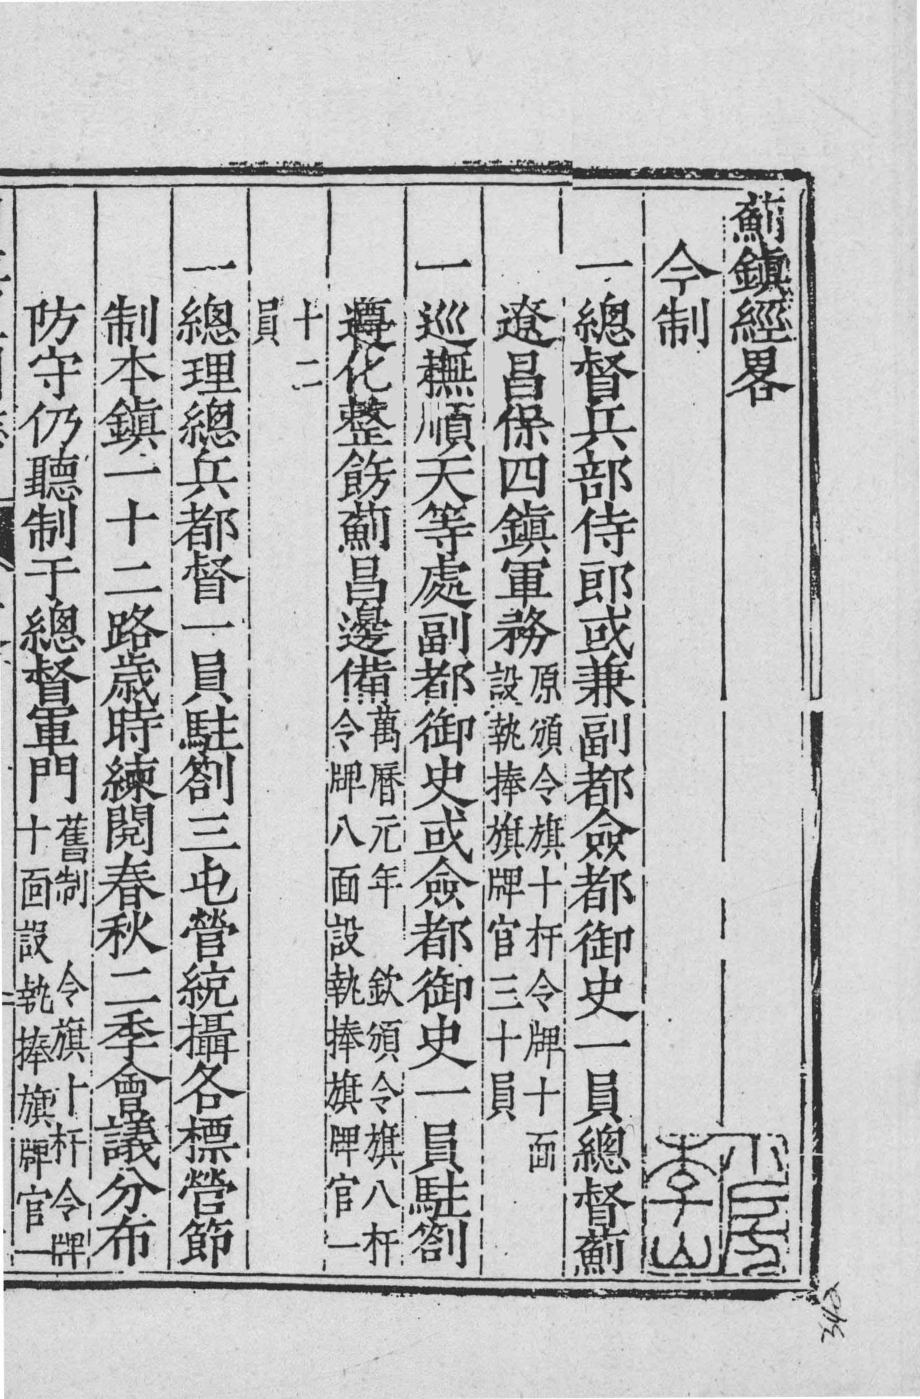 薊鎮經畧
今制
一總督兵部侍郎或兼副都僉都御史一員總督薊
遼昌保四鎮軍務原頒令旗十杆令牌十面設執捧旗牌官三十員
一巡撫順天等處副都御史或僉都御史一員駐劄
遵化整飭薊昌邊備萬曆元年 欽頒令旗八杆令牌八面設執捧旗牌官一
十二員
一總理總兵都督一員駐劄三屯營統攝各標營節
制本鎮一十二路歲時練閱春秋二季會議分布
防守仍聽制于總督軍門舊制 令旗十杆令牌十面設執捧旗牌官一